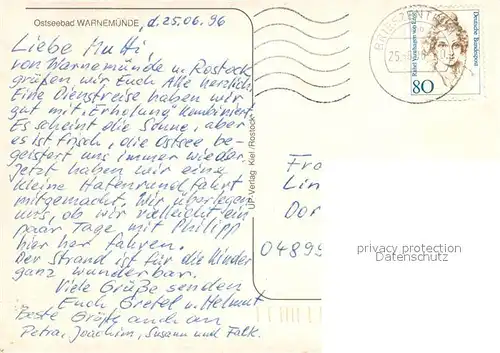 Ostseebad WARNEMÜNDE, d. 25.06.96
Liebe Mutti
von Warnemünde u. Rostock
grüßen wir Euch Alle herzlich
Eine Dienstreise haben wir
gut mit „Erholung" kombiniert.
Es scheint die Sonne, aber
es ist frisch, die Ostsee be-
geistert uns immer wieder.
Jetzt haben wir eine
kleine Hafenrundfahrt
mitgemacht. Wir überlegen
uns, ob wir vielleicht ein
paar Tage mit Philipp
hier her fahren.
Der Strand ist für die Kinder
ganz wunderbar.
Viele Grüße senden
Euch Gretel u. Helmut
Beste Grüße auch an
Petra, Joachim, Susann und Falk.
Verlag Kiel/Rostock
BRIEFZENTRUM
25
Deutsche Bundespost
Rahel Varnhagen von Ense
80
Fra
Lin
Dor
04899
privacy protection
Datenschutz